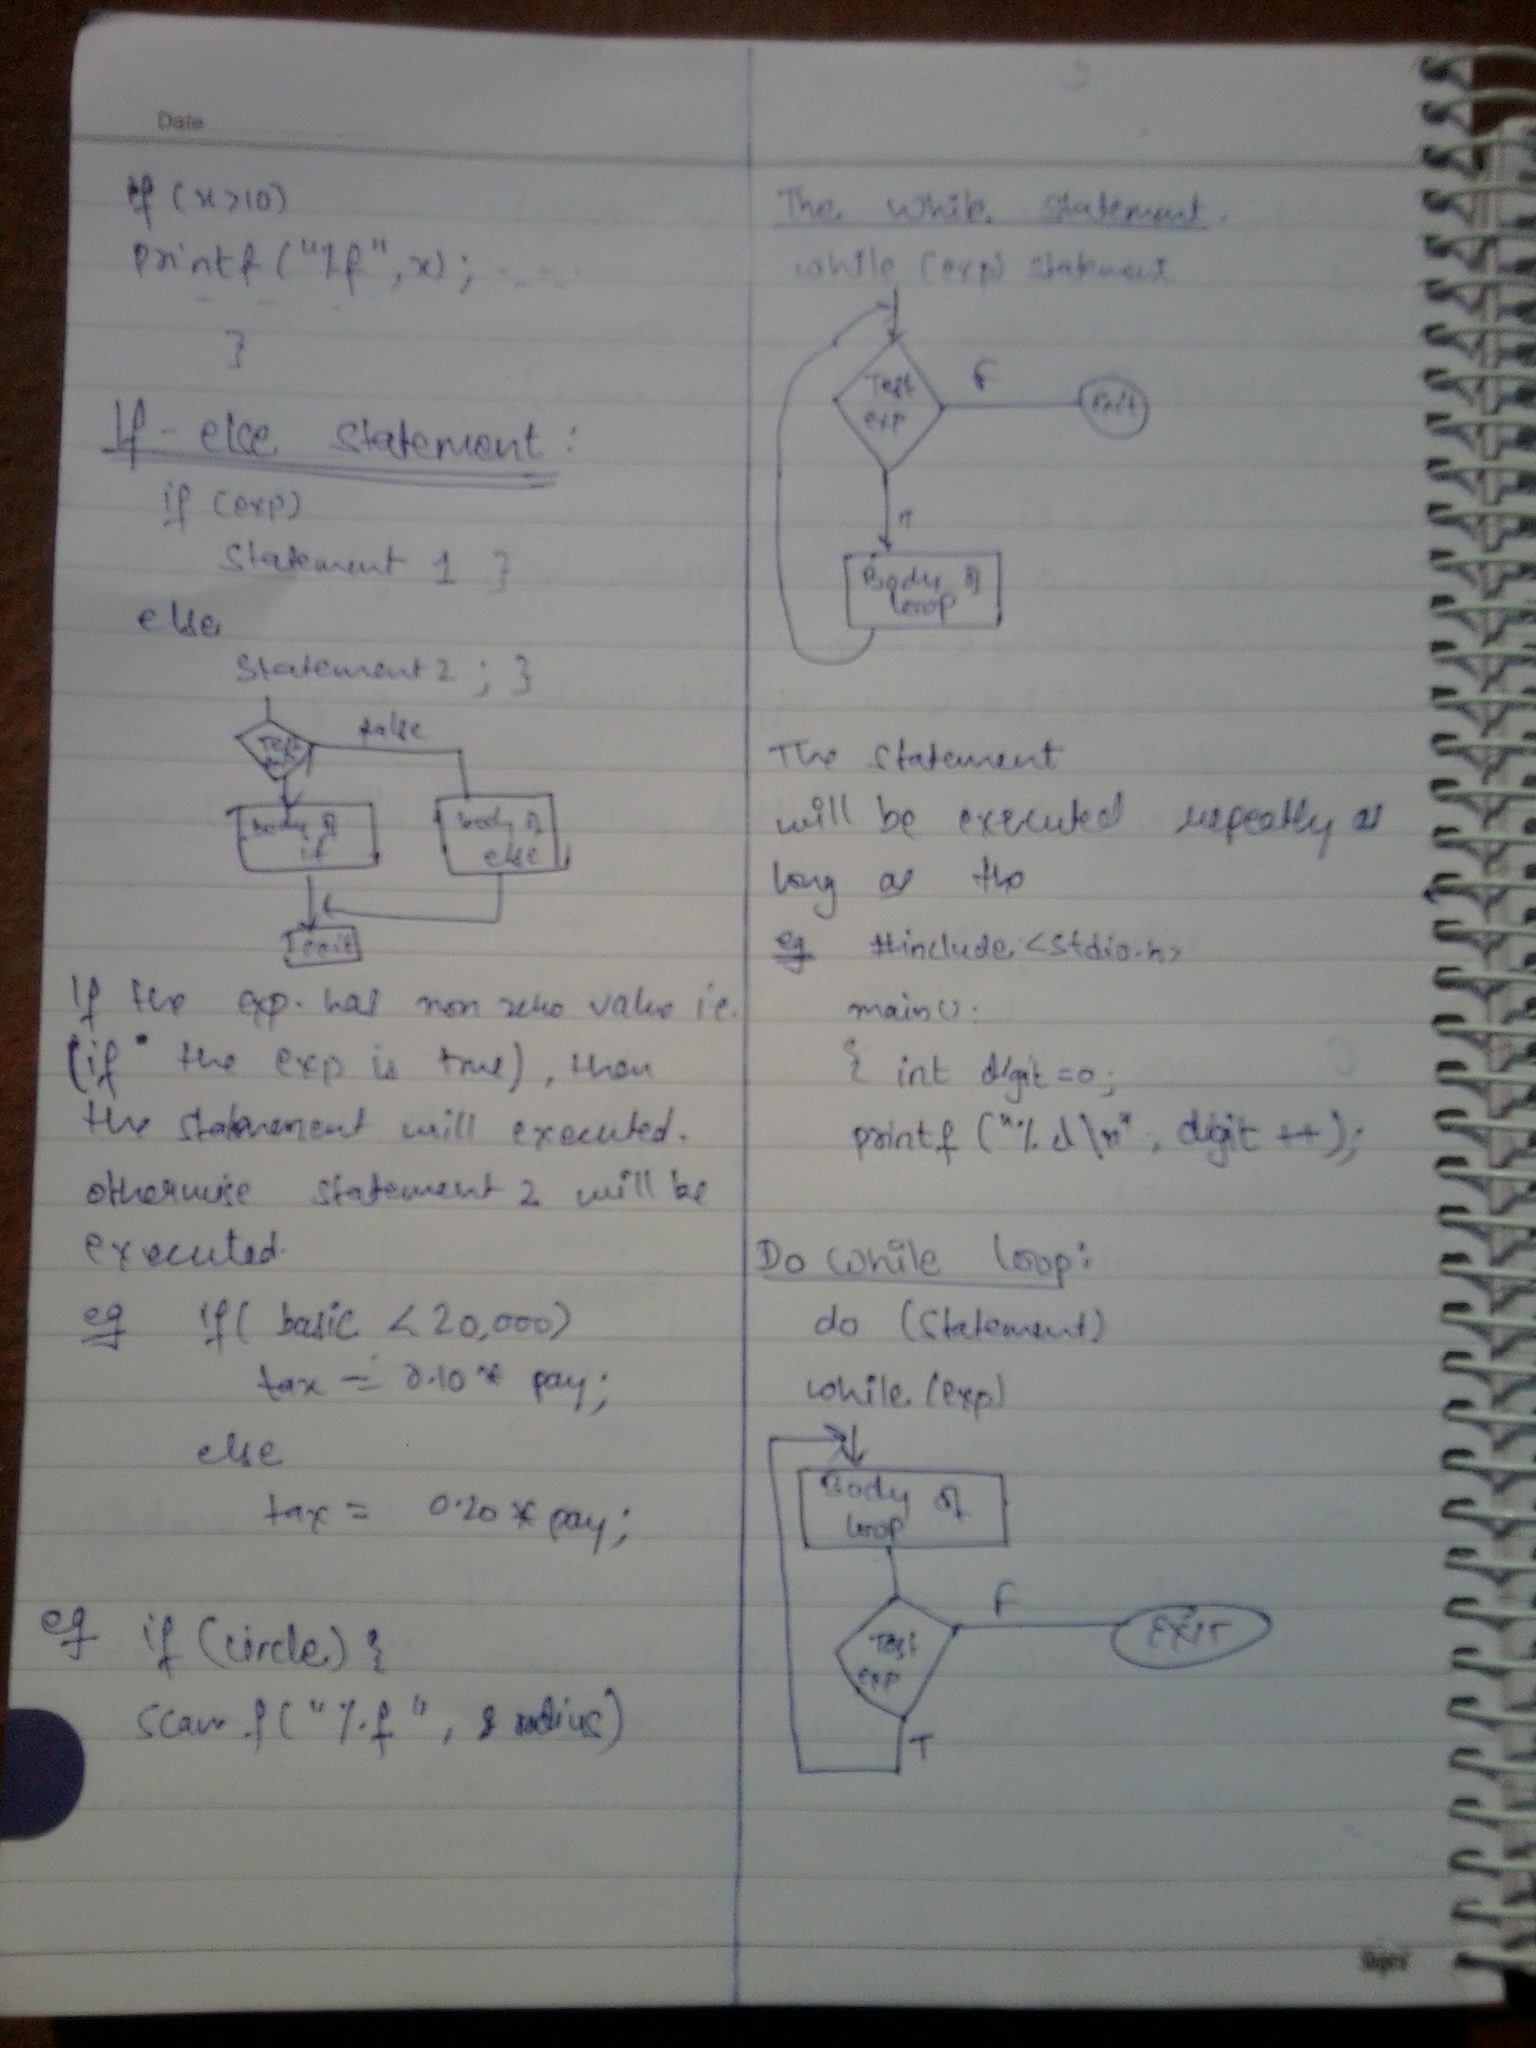 Date
if (x>10)
printf ("%f", x);
}
If-else statement:
if (exp)
statement 1 }
else
statement 2 ; }
false
Test
body of
if
body of
else
exit
If the exp. has non zero value i.e.
(if the exp is true), then
the statement will executed.
otherwise statement 2 will be
executed.
eg if( basic < 20,000)
tax = 0.10 * pay;
else
tax = 0.20 * pay;
eg if (circle) {
scanf ("%f", & radius)
The while statement.
while (exp) statement
Test
exp
F
Exit
T
Body of
loop
The statement
will be executed repeatly as
long as the
eg #include <stdio.h>
main():
{ int digit =0;
printf ("%d\n", digit ++);
Do while loop:
do (Statement)
while (exp)
Body of
loop
Test
exp
F
EXIT
T